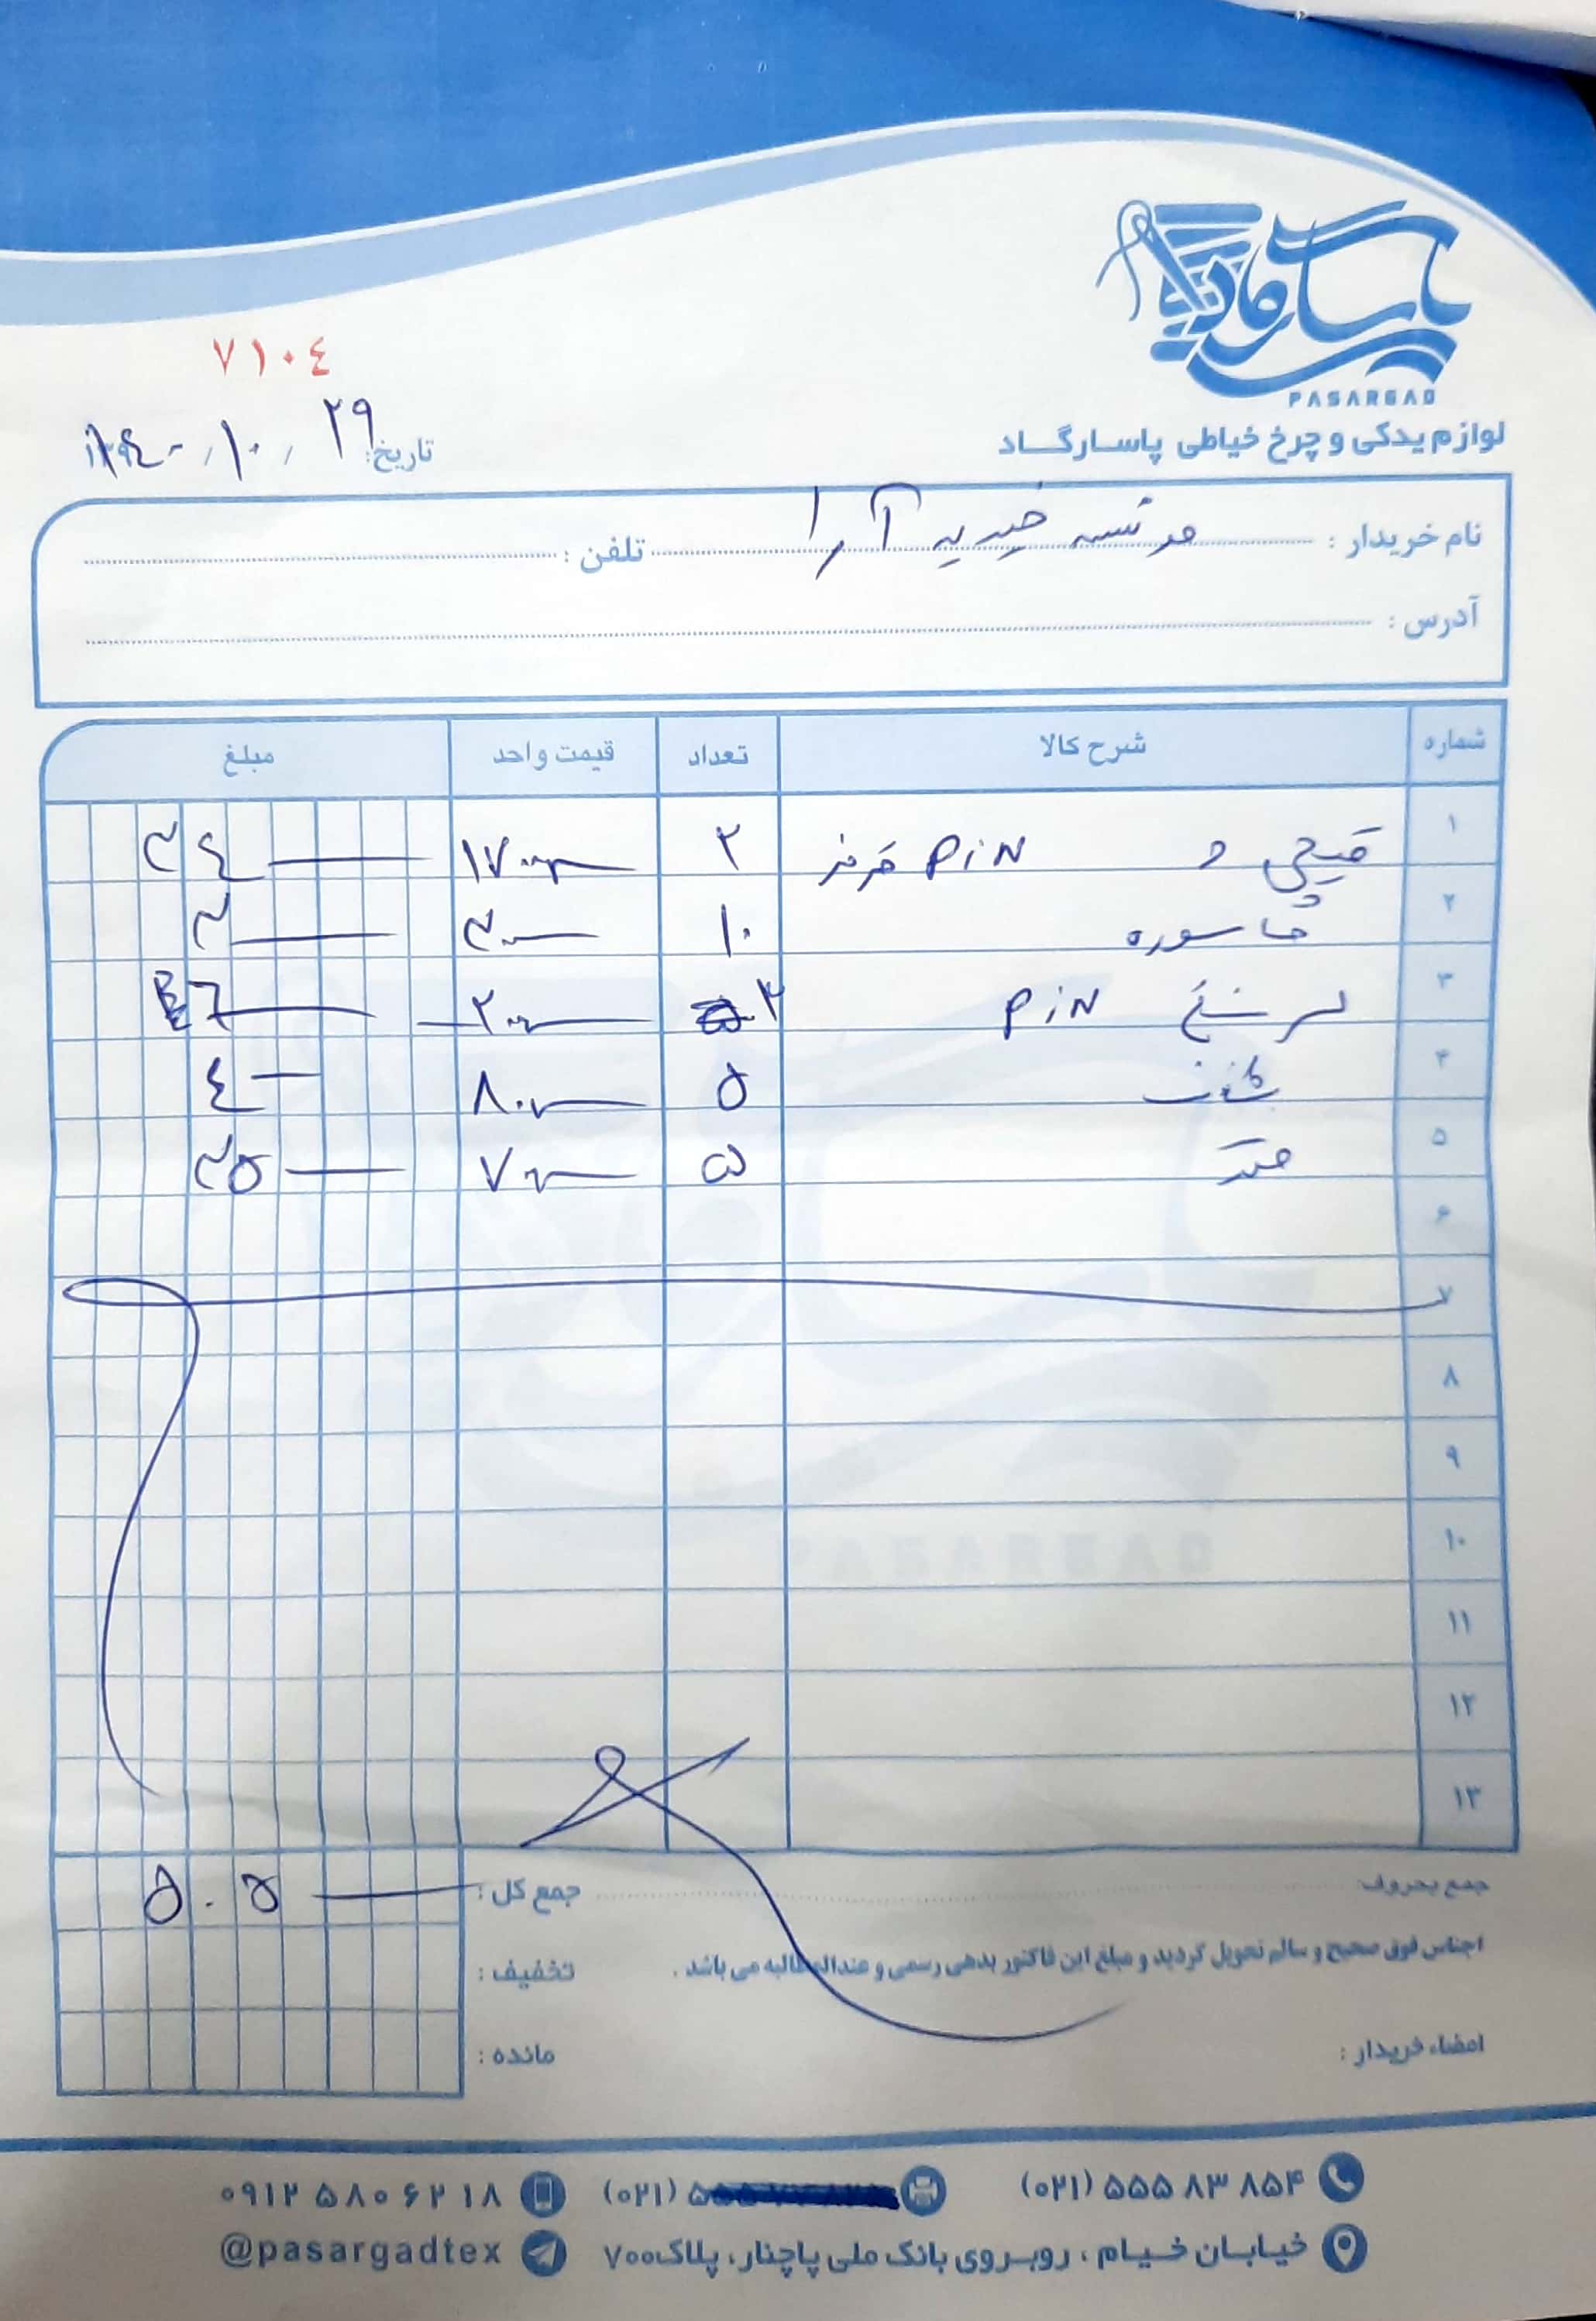 پاسارگاد
PASARGAD
لوازم یدکی و چرخ خیاطی پاسارگاد
۷۱۰۴
تاریخ: ۲۹ / ۱۰ / ۱۴۰۰
نام خریدار : موسسه خیریه آرا تلفن :
آدرس :
شماره شرح کالا تعداد قیمت واحد مبلغ
۱ قیچی PiN قرمز ۲ ۱۷۰۰۰۰ ۳۴
۲ ماسوره ۱۰ ۳۰۰۰ ۳
۳ PiN ۳ ۲۰۰۰۰ ۶
۴ ۵ ۸۰۰۰ ۴
۵ متر ۵ ۷۰۰۰ ۳۵
۶
۷
۸
۹
۱۰
۱۱
۱۲
۱۳
جمع بحروف: جمع کل : ۵۰۵
اجناس فوق صحیح و سالم تحویل گردید و مبلغ این فاکتور بدهی رسمی و عندالمطالبه می باشد .
تخفیف :
امضاء خریدار : مانده :
(۰۲۱) ۵۵۵ ۸۳ ۸۵۴ (۰۲۱) ۰۹۱۲ ۵۸۰ ۶۲ ۱۸
خیابان خیام ، روبروی بانک ملی پاچنار، پلاک۷۰۰ @pasargadtex